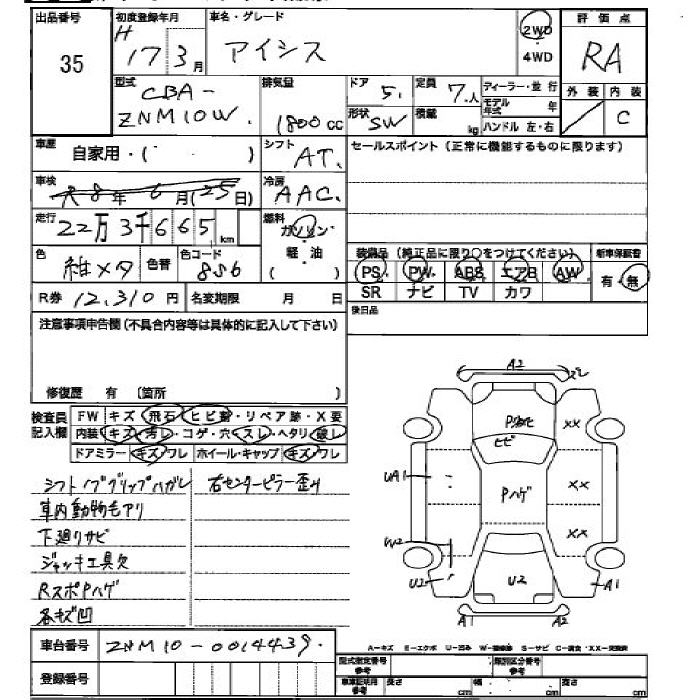 出品番号 35
初度登録年月 H 17 3月
車名・グレード アイシス
2WD ・ 4WD
評価点 RA
外装 内装 C
型式 CBA- ZNM10W
排気量 1800cc
ドア 5
形状 SW
定員 7人
積載 kg
ディーラー・並行
モデル年式 年
ハンドル 左・右
車歴 自家用・( )
シフト AT
車検 8年6月(25日)
冷房 AAC
走行 22万3千665km
燃料 ガソリン・軽油
色 紺メタ 色替
色コード 8S6
R券 12,310円 名変期限 月 日
セールスポイント(正常に機能するものに限ります)
装備品(純正品に限り○をつけてください) 新車保証書
PS PW ABS エアB AW 有・無
SR ナビ TV カワ
後日品
注意事項申告欄(不具合内容等は具体的に記入して下さい)
修復歴 有 〔箇所 〕
検査員記入欄
FW キズ・飛石・ヒビ・リペア跡・X要
内装 キズ・汚レ・コゲ・穴・スレ・ヘタリ・破レ
ドアミラー キズ・ワレ ホイール・キャップ キズ・ワレ
シフトノブグリップハガレ
右センターピラー歪み
車内動物毛アリ
下廻りサビ
ジャッキ工具欠
RスポPハゲ
各キズ凹
A2
2
P劣化
ヒビ
XX
UA1
Pハゲ
XX
W2
XX
U2
U2
A1
A1
A2
A-キズ E-エクボ U-凹み W-補修跡 S-サビ C-腐食・XX-交換済
車台番号 ZNM10-0014439
登録番号
型式指定番号 参考
類別区分番号 参考
車車証明用 参考 長さ cm 幅 cm 高さ cm